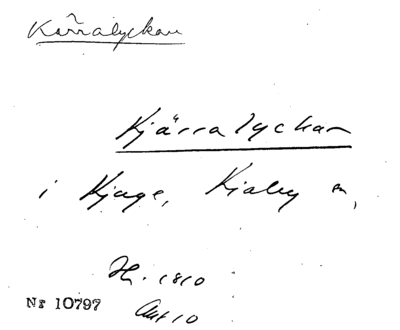 Kärralyckan
Kjärralyckan
i Kjuge, Kiaby sn,
H. 1810
Nr 10797
Akt 10